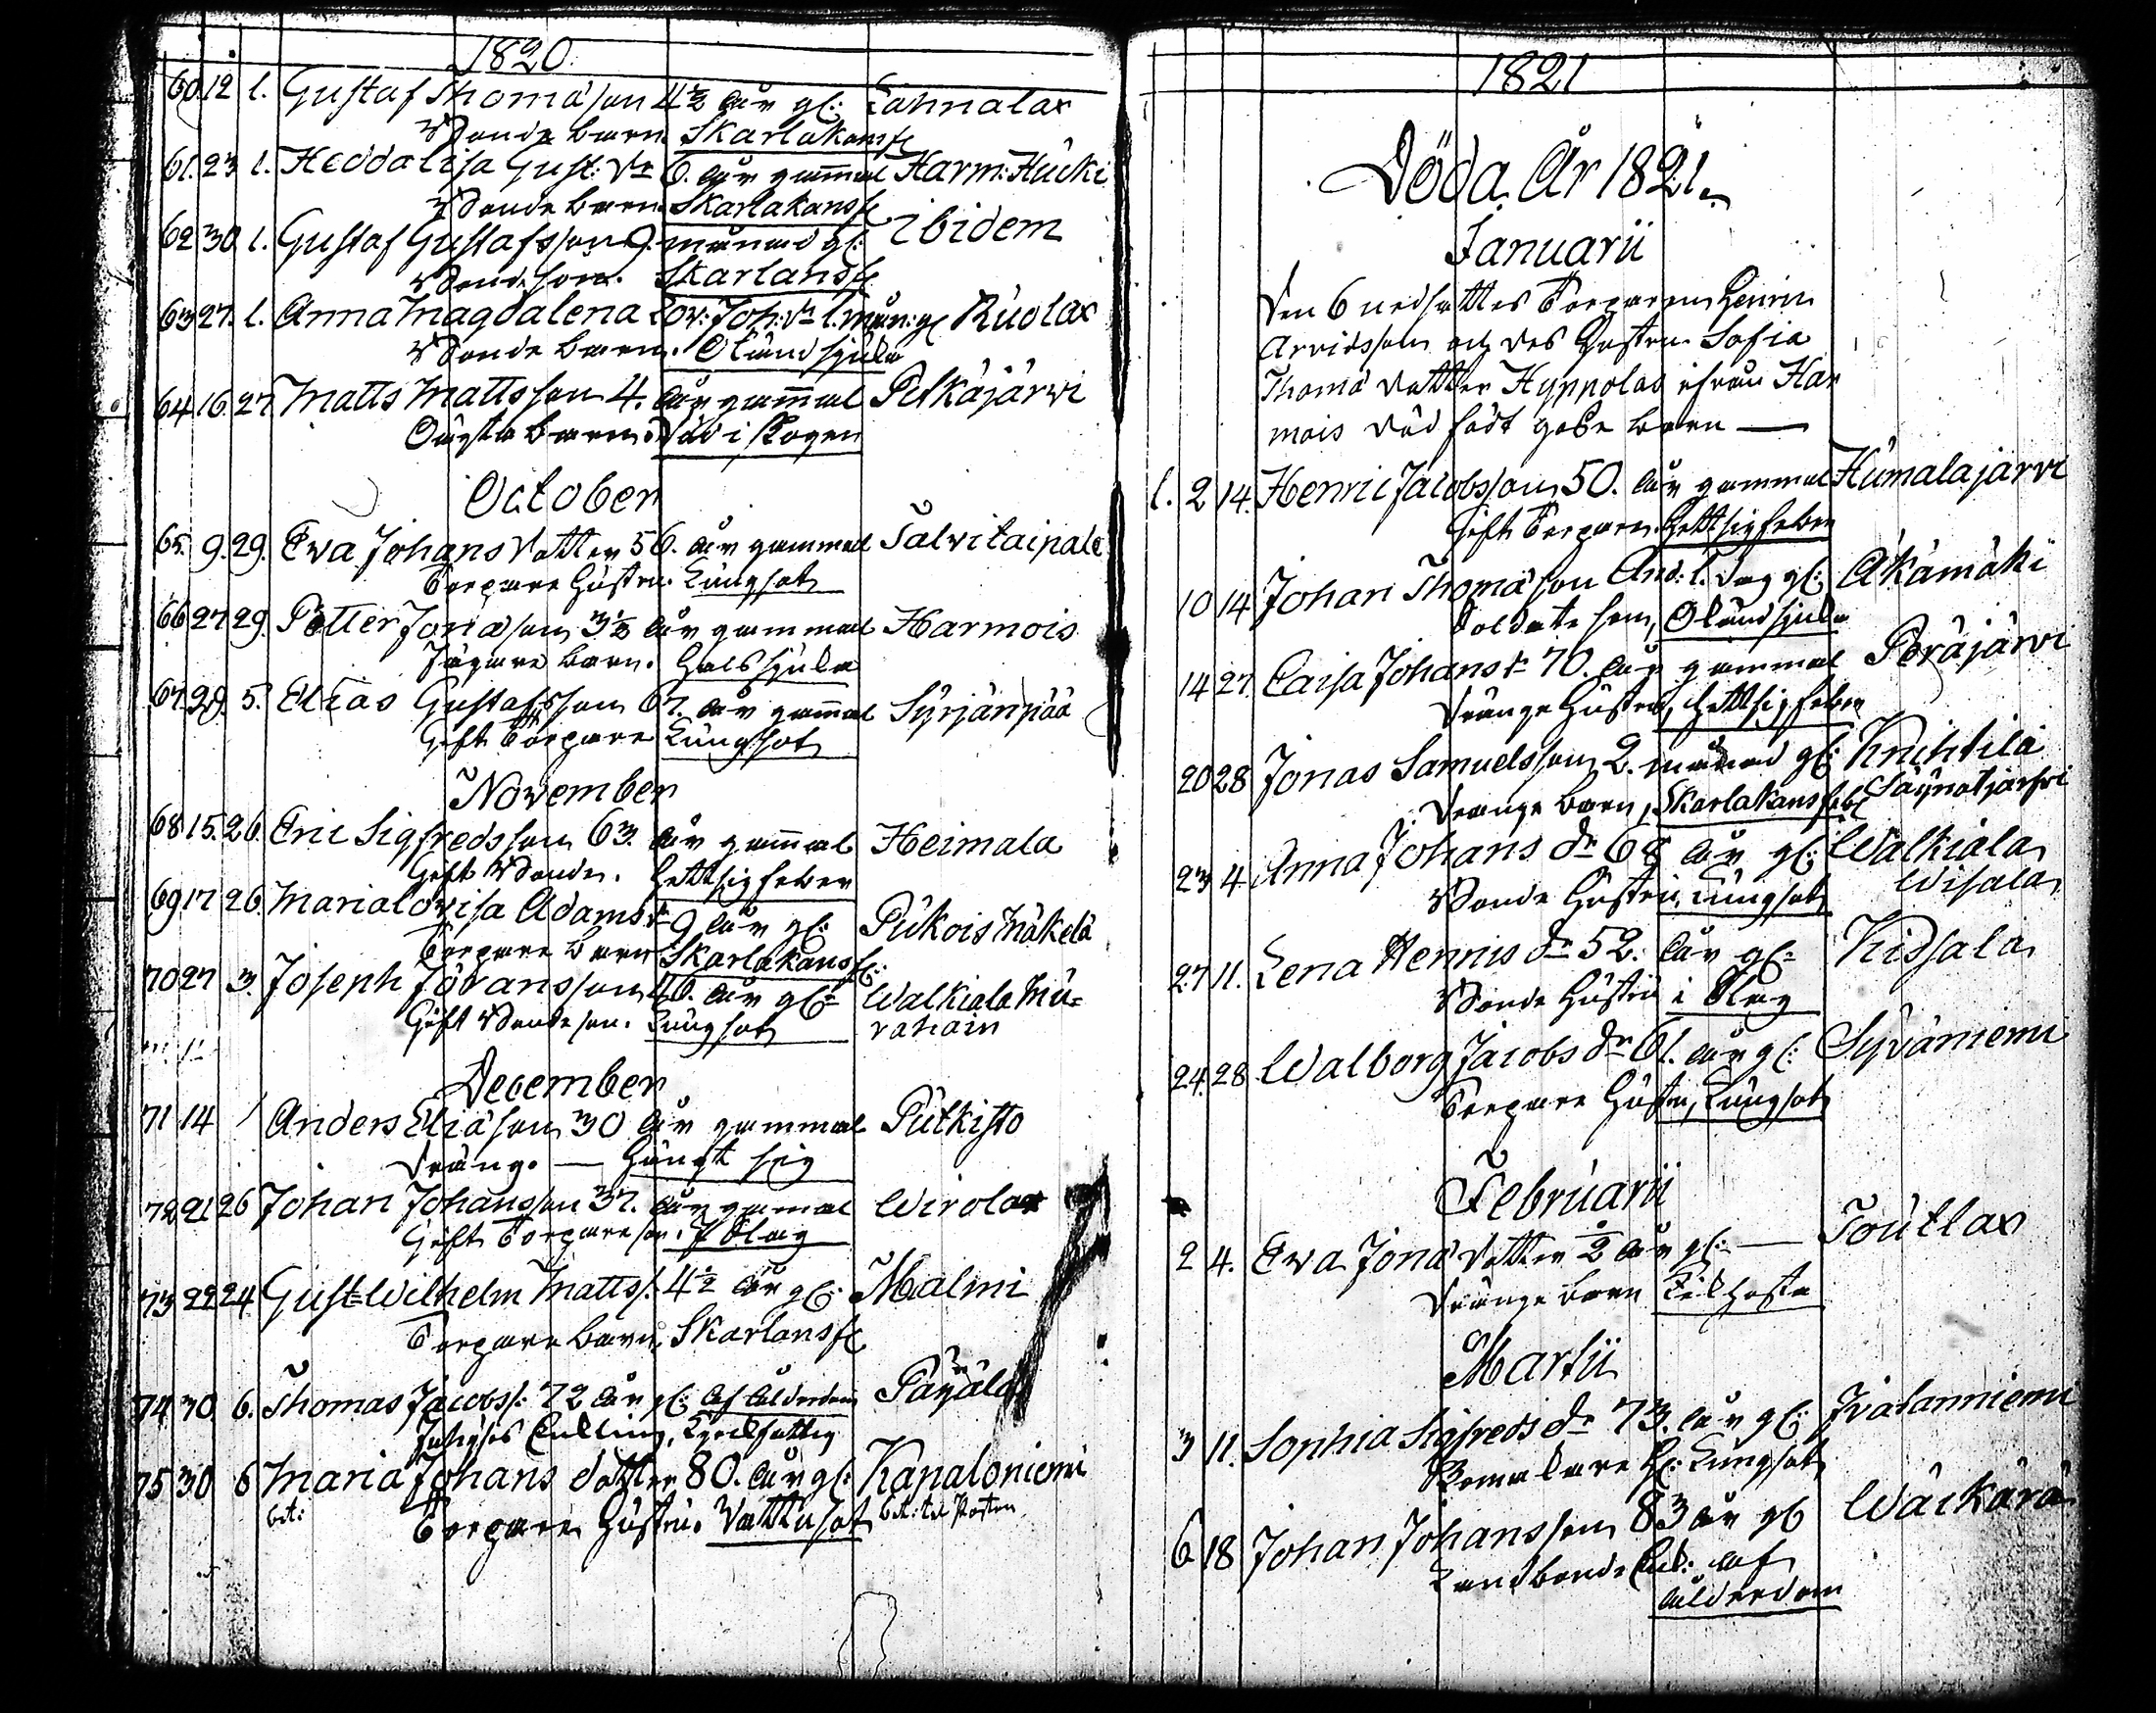 1820
60. 12 1. Gustaf Thomason 4½ år gl: Lahnalax
Bonde barn. Skarlakansf
61. 23 1. Hedda Lisa Gust: dr 6. år gammal Harm: Hucki
Bonde barn. Skarlakansf
62 30 1. Gustaf Gustafsson 9. månad gl: ibidem
Bondeson. Skarlansf
63 27. 1. Anna Magdalena Lov: Joh: dr 1. mån: gl Ruolax
Bonde barn. Okänd sjuka
64 16. 27 Matts Mattsson 4. år gammal Pitkäjärwi
barn. död i skogen
October
65. 9. 29. Eva Johans dotter 56. år gammal Salvitaipale
Torpare Hustru. Lungsot
66 27 29. Petter Jonason 3½ år gammal Harmois
Jägare barn. Halssjuka
67. 29. 5. Elias Gustafsson 67. år gammal Syrjänpää
Gift Torpare Lungsot
November
68 15. 26. Eric Sigfredsson 63. år gammal Heimala
Gift Bonde. Hettsigfeber
69 17 26. Maria Lovisa Adams dr 9 år gl: Pukois Mäkelä
Torpare barn Skarlakansf:
70 27 3. Joseph Jöransson 46. år gl: Walkiala Mu=
Gift Bondeson. Lungsot rahain
December
71 14 1 Anders Eliason 30 år gammal Putkisto
Dräng. — Hängt sig
72 21 26 Johan Johansson 37. år gamal Wirolax
Gift Torpareson. Slag
73 22 24 Gust Wilhelm Matts s. 4½ år gl: Malmi
Torpare barn, Skarlansf
74 30 6. Thomas Jacobs s: 72 år gl: af ålderdom Päyälä
Inhyses Enkling, Tjenlfattig
75 30 6 Maria Johans dotter 80. år gl: Kapaloniemi
bet: Torpare Hustru. Vattusot
1821
Döda År 1821.
Januarii
Den 6 nedsattes Torparen Henric
Arvidsson och des Hustru Sofia
Thoma dotter Hyppolas ifrån Har
mois död födt gosse barn —
1. 2 14. Henric Jacobsson 50. år gammal Humalajärvi
Gift Torpare. Hettsigfeber
10 14 Johan Thomason And: 1. dag gl: Äkämäki
Soldate son, Okänd sjuka
14 27. Caisa Johans dr 70. år gammal Peräjärvi
Dränge Hustru, Hettsigfeber
20 28 Jonas Samuelsson 2. månad gl: Knihtilä
Dränge barn, Skarlakansfeb Säynätjärfvi
23 4. Anna Johans dr 68 år gl: Walkiala
Bonde Hustru, Lungsot Wisala
27 11. Lena Henrics dr 52. år gl: Kidsala
Bonde Hustru i Slag
24. 28 Walborg Jacobs dr 61. år gl: Syväniemi
Torpare Hustru, Lungsot
Februarii
2 4. Eva Jona dotter 2 år gl: — Toutlax
Dränge barn Kikhosta
Martii
3 11. Sophia Sigfreds dr 73. år gl: Ivalanniemi
H: Lungsot
6 18 Johan Johansson 83 år gl Wäckärä
Landbonde Enk: af
ålderdom